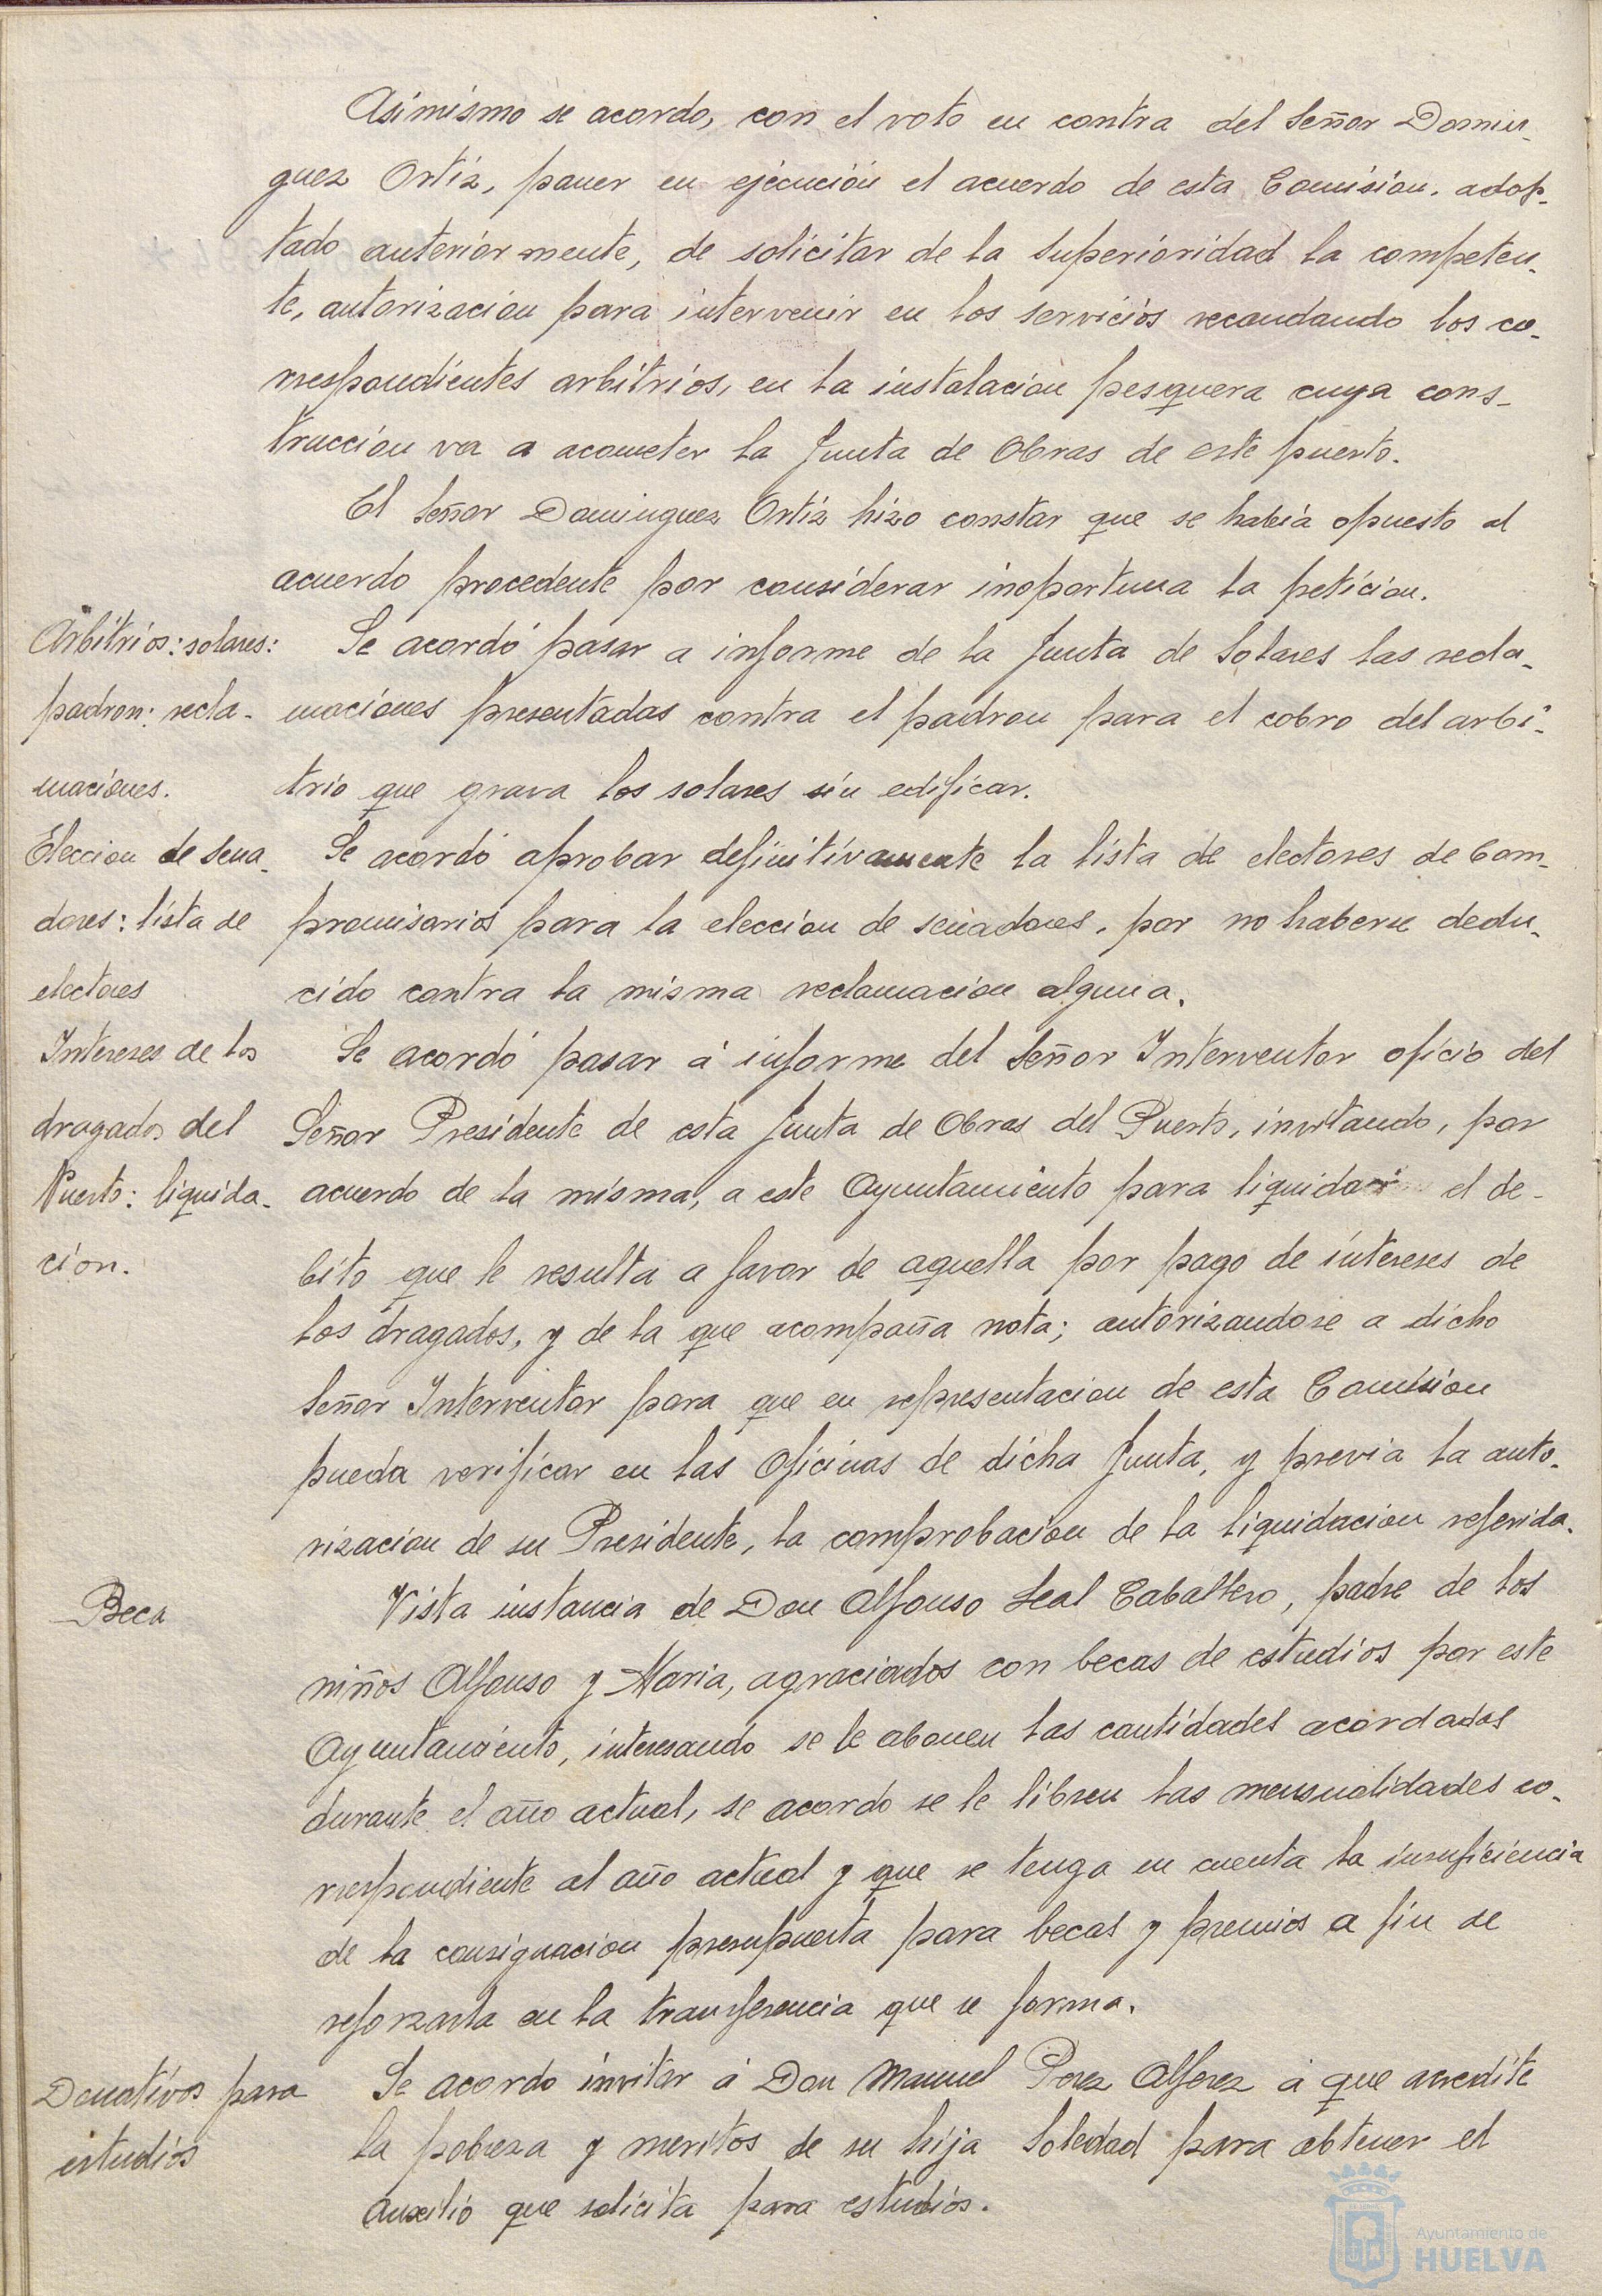 Asimismo se acordo, con el voto en contra del Señor Domin-
guez Ortiz, poner en ejecución el acuerdo de esta Comision, adop-
tado anteriormente, de solicitar de la Superioridad la competen-
te, autorizacion para intervenir en los servicios recaudando los co-
rrespondientes arbitrios, en la instalacion pesquera cuya cons-
truccion va a acometer la Junta de Obras de este puerto.
El Señor Dominguez Ortiz hizo constar que se habia opuesto al
acuerdo procedente por considerar inoportuna la peticion.
Arbitrios: solares:
padron: recla-
maciones.
Se acordó pasar a informe de la Junta de Solares las recla-
maciones presentadas contra el padron para el cobro del arbi-
trio que grava los solares sin edificar.
Eleccion de sena-
dores: lista de
electores
Se acordó aprobar definitivamente la lista de electores de Com-
promisarios para la eleccion de senadores, por no haberse dedu-
cido contra la misma reclamacion alguna.
Intereses de los
dragados del
Puerto: liquida-
cion.
Se acordó pasar á informe del Señor Interventor oficio del
Señor Presidente de esta Junta de Obras del Puerto, invitando, por
acuerdo de la misma, a este Ayuntamiento para liquidar el de-
bito que le resulta a favor de aquella por pago de intereses de
los dragados, y de la que acompaña nota; autorizandose a dicho
Señor Interventor para que en representacion de esta Comision
pueda verificar en las Oficinas de dicha Junta, y previa la auto-
rizacion de su Presidente, la comprobacion de la liquidacion referida.
Beca
Vista instancia de Don Alfonso Leal Caballero, padre de los
niños Alfonso y Maria, agraciados con becas de estudios por este
Ayuntamiento, interesando se le abonen las cantidades acordadas
durante el año actual, se acordo se le libren las mensualidades co-
rrespondiente al año actual y que se tenga en cuenta la insuficiencia
de la consignacion presupuesta para becas y premios a fin de
reforzarla en la transferencia que se forma.
Donativos para
estudios
Se acordo invitar á Don Manuel Perez Alferez á que acredite
la pobreza y meritos de su hija Soledad para obtener el
auxilio que solicita para estudios.
Ayuntamiento de
HUELVA